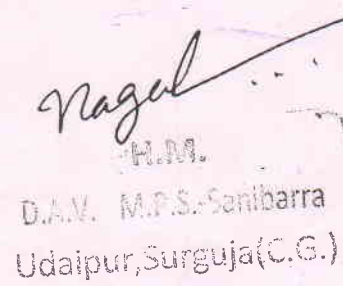 Nagal
H.M.
D.A.V. M.P.S.-Sanibarra
Udaipur,Surguja(C.G.)